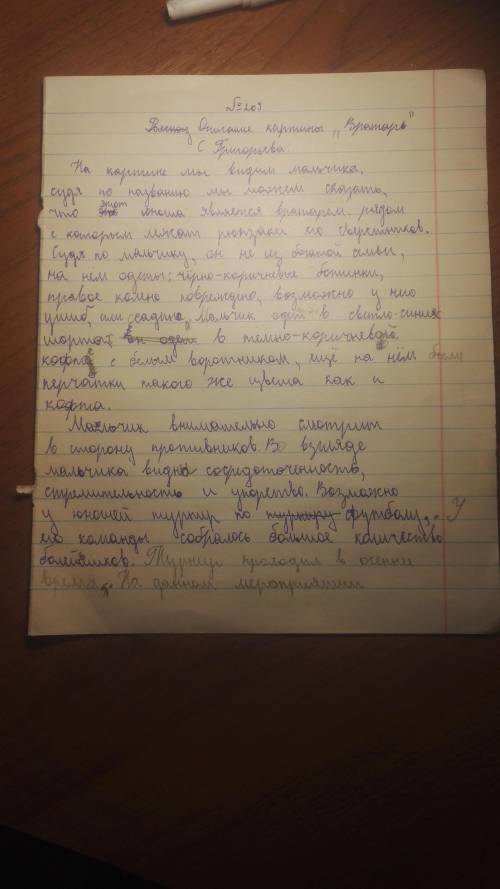 № 209.
Описание картины "Вратарь"
С Григорьева.
На картине мы видим мальчика,
судя по названию мы можем сказать,
что этот юноша является вратарём. рядом
с которым лежат рюкзаки его сверстников.
Судя по мальчику, он не из богатой семьи,
на нём одеты: чёрно-коричневые ботинки,
правое колено повреждено, возможно у него
ушиб, или ссадина. Мальчик одет в светло-синих
шортах он одет в тёмно-коричневой
кофте с белым воротником, ещё на нём были
перчатки такого же цвета как и
кофта.
Мальчик внимательно смотрит
в сторону противников. Во взгляде
мальчика видны сосредоточенность,
стремительность и упорство. Возможно
у юношей турнир по турниру футболу, . У
его команды собралось большое количество
болельщиков. Турнир проходил в осеннее
время. На данном мероприятии